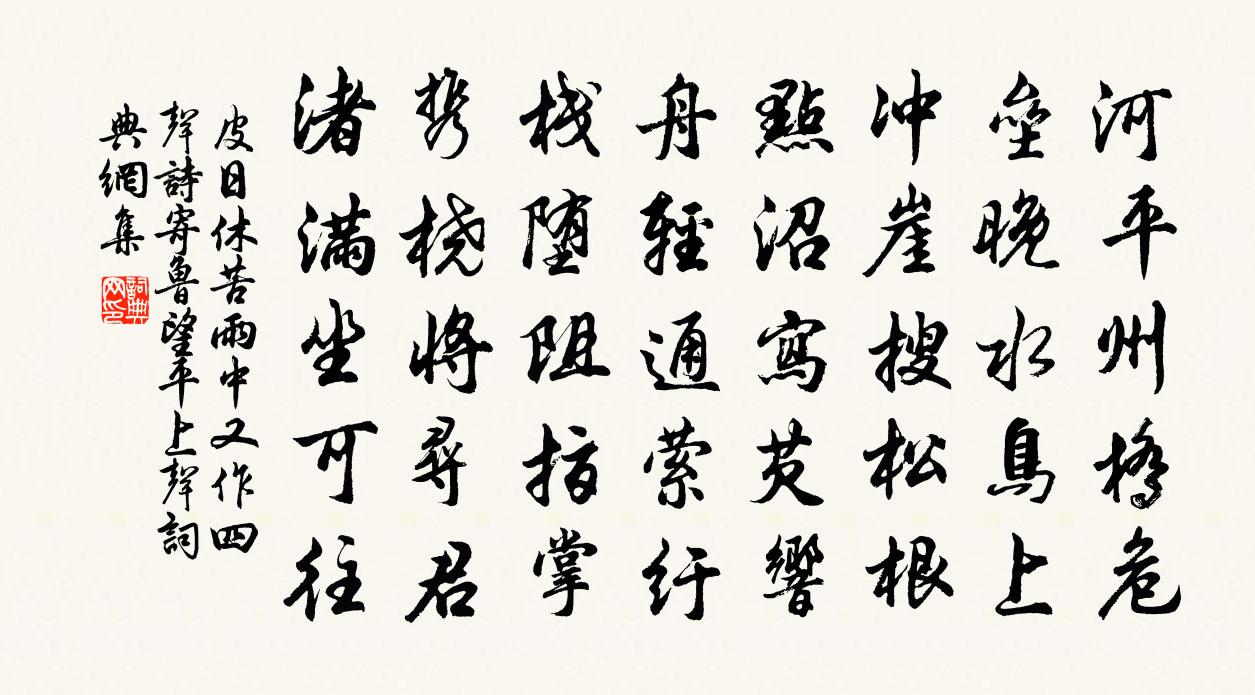 河平州橋危
垒晚水鳥上
冲崖搜松根
點沼寫芡響
舟輕通縈紆
栈堕阻指掌
携桡將尋君
渚滿坐可往
皮日休苦雨中又作四
聲詩寄魯望平上聲詞
典網集
詞典网印